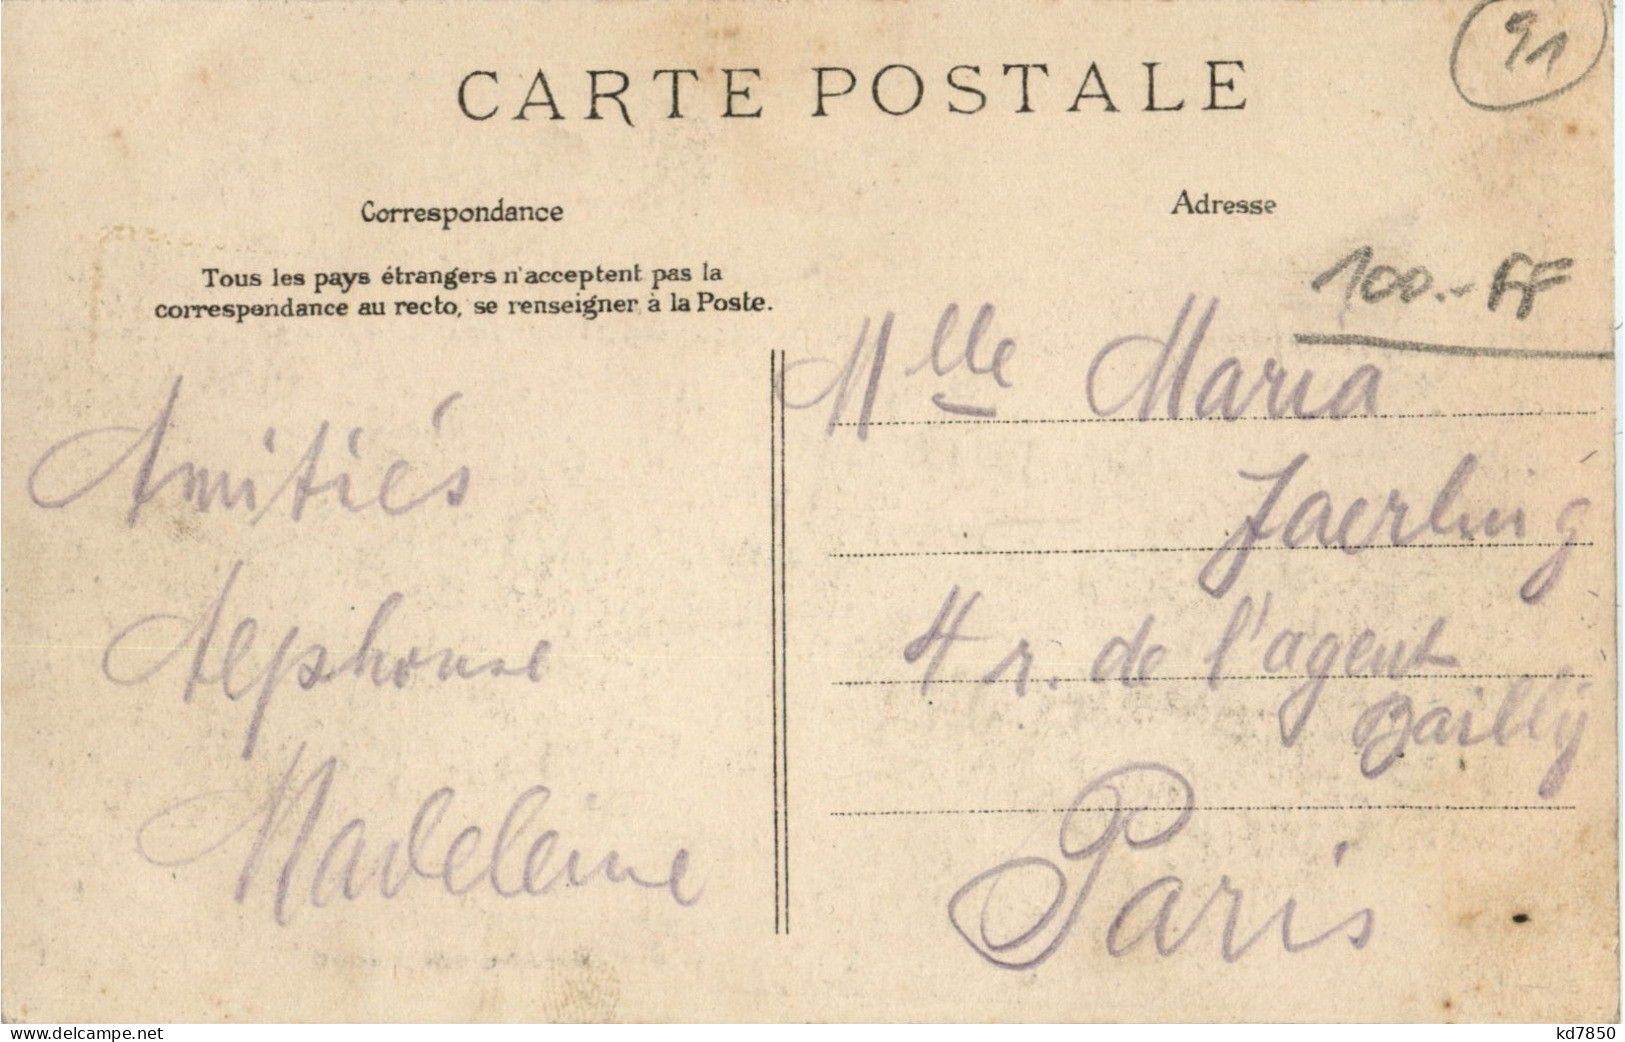 CARTE POSTALE
91
Correspondance
Adresse
Tous les pays étrangers n'acceptent pas la
correspondance au recto, se renseigner à la Poste.
100.- FF
Mlle Maria
Jaerling
4 r. de l'agent
Bailly
Paris
Amitiés
Alphonse
Madeleine
www.delcampe.net
kd7850